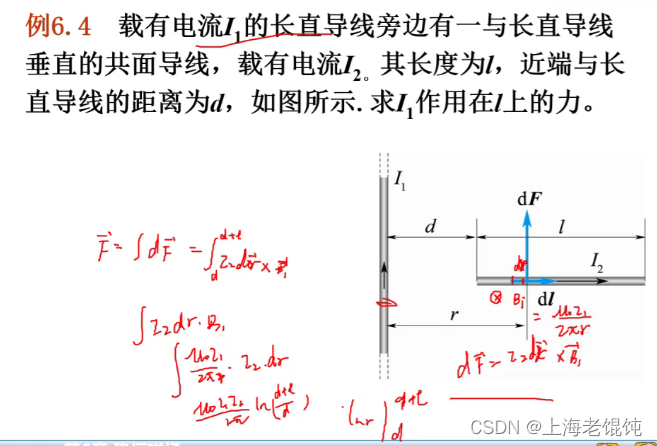 例6.4 载有电流I₁的长直导线旁边有一与长直导线
垂直的共面导线，载有电流I₂。其长度为l，近端与长
直导线的距离为d，如图所示.求I₁作用在l上的力。
I₁
dF
d
l
dr
I₂
⊗ B₁ dl
= μ₀I₁/2πr
r
dF⃗ = I₂dr⃗ × B⃗₁
F⃗ = ∫dF⃗ = ∫_d^{d+l} I₂dr⃗ × B⃗₁
∫I₂dr·B₁
∫ μ₀I₁/2πr · I₂·dr
μ₀I₁I₂/2π ln(d+l/d)
lnr |_d^{d+l}
CSDN @上海老馄饨